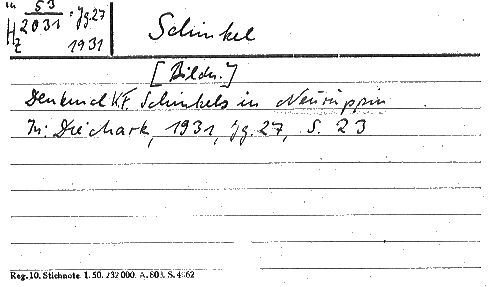 in 53
2031 · Jg. 27
Hz 1931
Schinkel
[Bildn.]
Denkmal K.F. Schinkels in Neuruppin
In: Die Mark, 1931, Jg. 27, S. 23
Reg. 10. Stichnote 1. 50. 232 000. A. 803. S. 4862